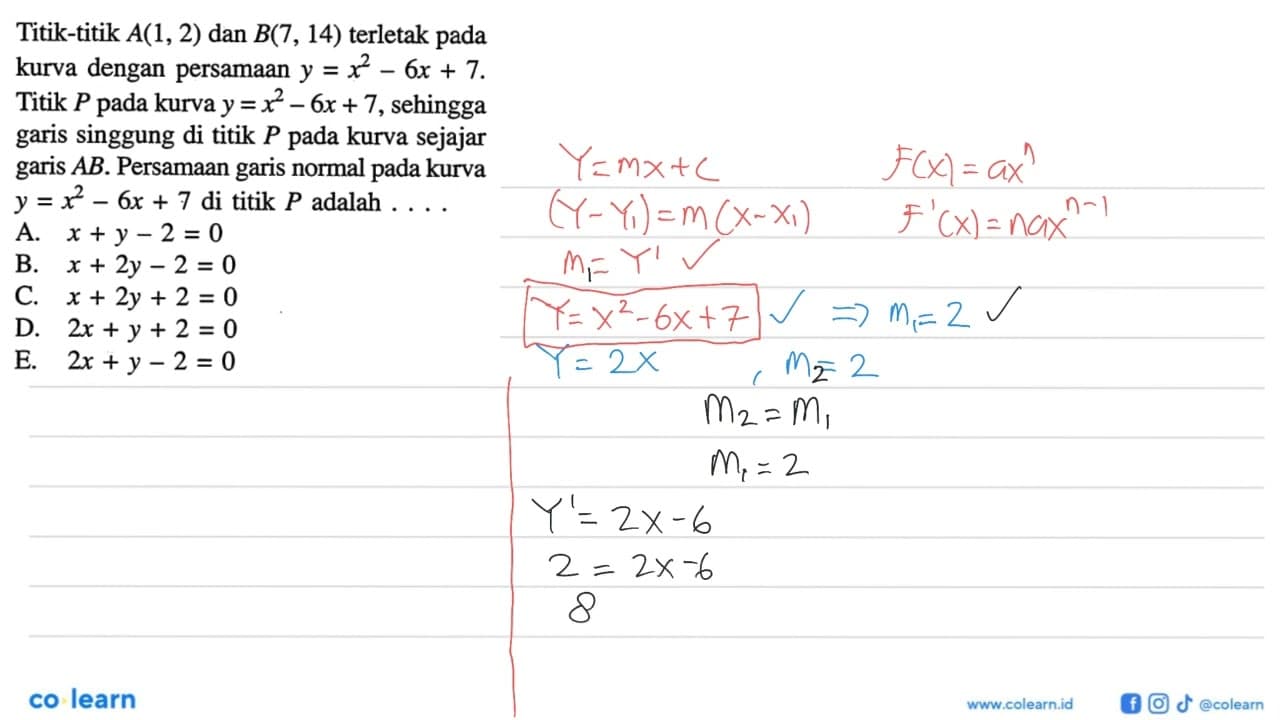 Titik-titik A(1, 2) dan B(7, 14) terletak pada
kurva dengan persamaan y = x² – 6x + 7.
Titik P pada kurva y = x² – 6x + 7, sehingga
garis singgung di titik P pada kurva sejajar
garis AB. Persamaan garis normal pada kurva
y = x² – 6x + 7 di titik P adalah . . . .
A. x + y – 2 = 0
B. x + 2y – 2 = 0
C. x + 2y + 2 = 0
D. 2x + y + 2 = 0
E. 2x + y – 2 = 0
Y = mx + c
(Y – Y₁) = m (x – x₁)
m₁ = Y' ✓
Y = x² – 6x + 7 ✓ ⇒ m₁ = 2 ✓
Y = 2x , m₂ = 2
m₂ = m₁
m₁ = 2
Y' = 2x – 6
2 = 2x – 6
8
F(x) = axⁿ
F'(x) = naxⁿ⁻¹
co learn
www.colearn.id
@colearn